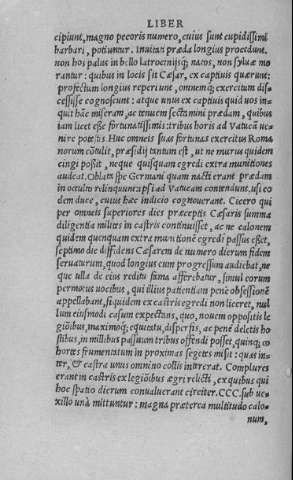 LIBER
cipiunt, magno pecoris numero, cuius sunt cupidissimi
barbari, potiuntur. Inuitati præda longius procedunt.
non hos palus in bello latrocinijsq; natos, non syluæ mo
rantur: quibus in locis sit Cæsar, ex captiuis quærunt:
profectum longius reperiunt, omnemq; exercitum dis-
cessisse cognoscunt: atque unus ex captiuis quid uos in-
quit hāc miseram, ac tenuem sectamini prædam, quibus
iam licet esse fortunatissimis: tribus horis ad Vatucā ue-
nire potestis. Huc omneis suas fortunas exercitus Roma
norum cōtulit, præsidij tantum est, ut ne murus quidem
cingi possit, neque quisquam egredi extra munitiones
audeat. Oblata spe Germani quam nacti erant prædam
in occulto relinquunt: ipsi ad Vatucam contendunt, usi eo
dem duce, cuius hæc indicio cognouerant. Cicero qui
per omneis superiores dies præceptis Cæsaris summa
diligentia milites in castris continuisset, ac ne calonem
quidem quenquam extra munitionē egredi passus esset,
septimo die diffidens Cæsarem de numero dierum fidem
seruaturum, quod longius eum progressum audiebat, ne
que ulla de eius reditu fama afferebatur, simul eorum
permotus uocibus, qui illius patientiam penè obsessionē
appellabant, siquidem ex castris egredi non liceret, nul
lum eiusmodi casum expectans, quo, nouem oppositis le
giōibus, maximoq; equitatu, dispersis, ac penè deletis ho
stibus, in millibus passuum tribus offendi posset, quinq; co
hortes frumentatum in proximas segetes misit: quas in-
ter, & castra unus omnino collis intererat. Complures
erant in castris ex legiōibus ægri relicti, ex quibus qui
hoc spatio dierum conualuerant circiter. CCC. sub ue-
xillo unà mittuntur: magna præterea multitudo calo-
num,